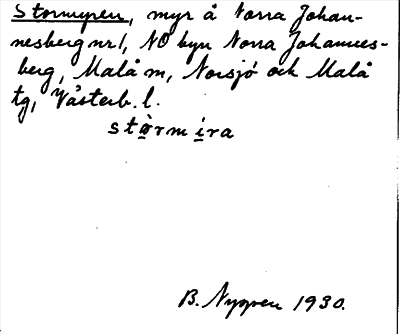 Stormyren, myr å Norra Johan-
nesberg nr 1, NO byn Norra Johannes-
berg, Malå m, Norsjö och Malå
tg, Västerb. l.
stòrmira
B. Nygren 1930.